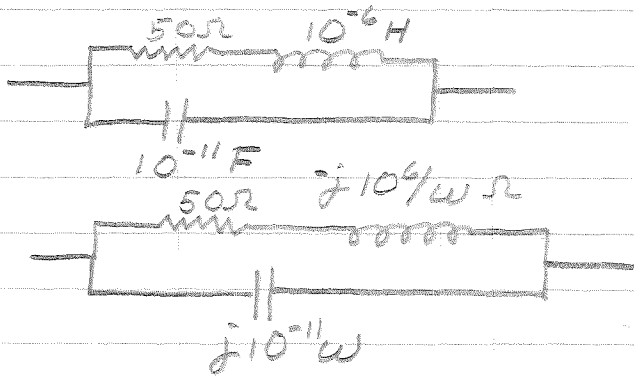 50Ω 10⁻⁶ H
10⁻¹¹ F
50Ω -j 10⁶/ω Ω
j 10⁻¹¹ ω